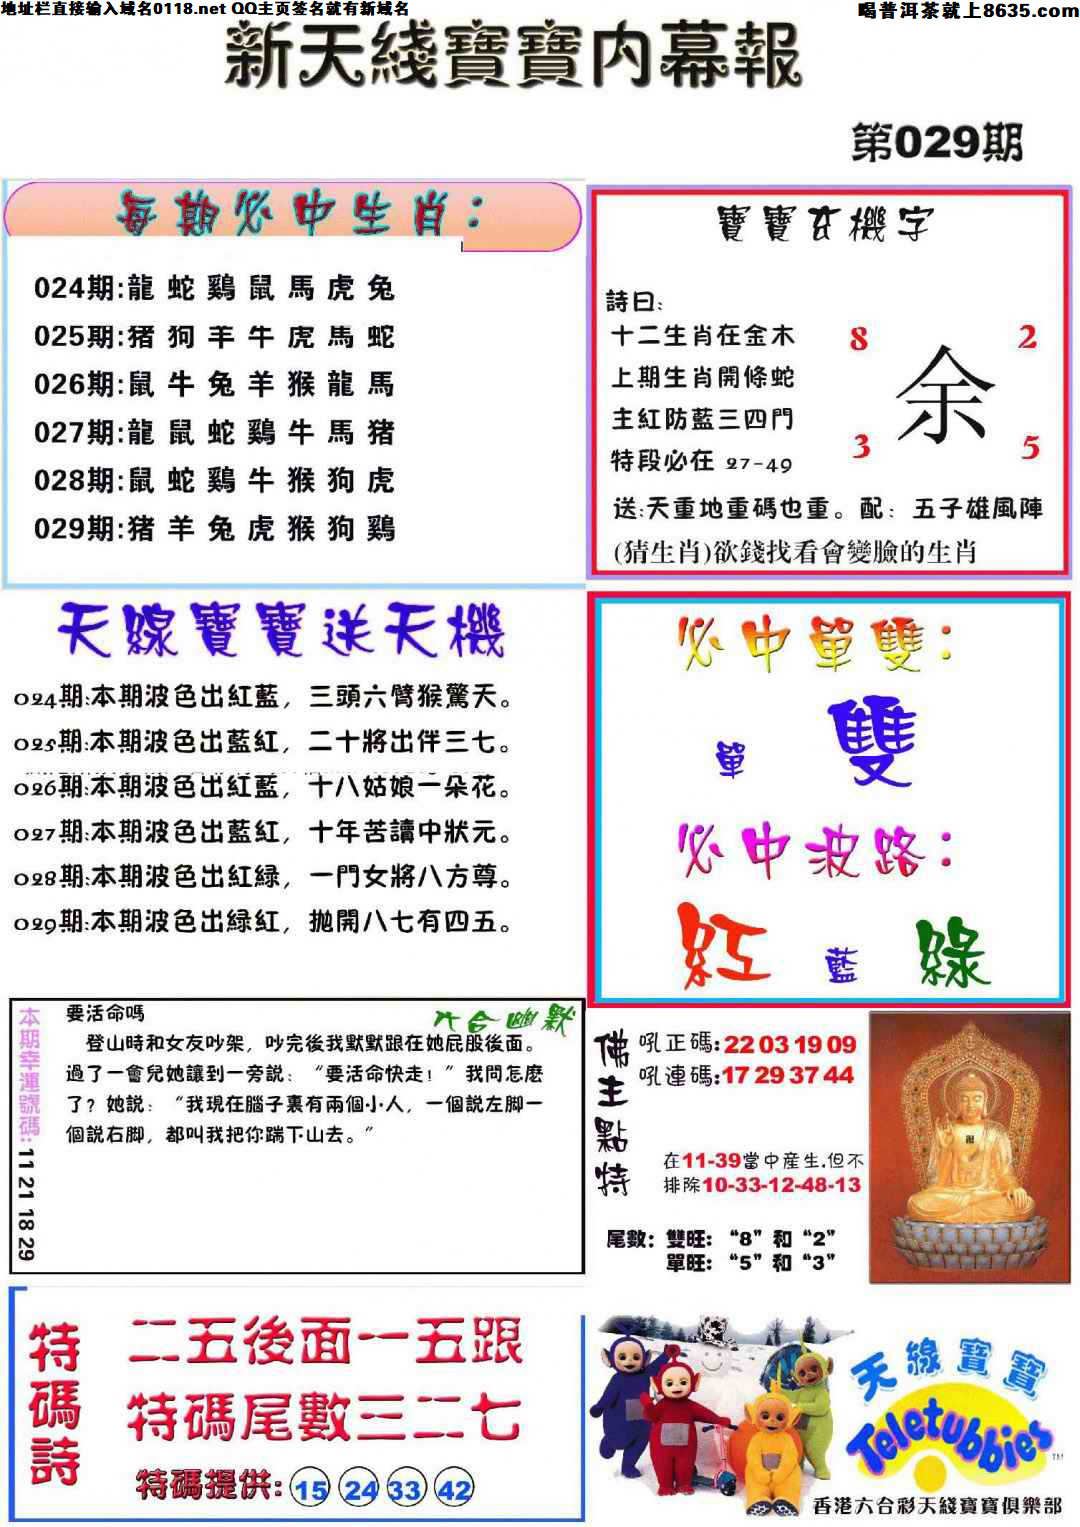 地址栏直接输入域名0118.net QQ主页签名就有新域名
喝普洱茶就上8635.com
新天綫寶寶内幕報
第029期
每期必中生肖：
024期:龍 蛇 鷄 鼠 馬 虎 兔
025期:猪 狗 羊 牛 虎 馬 蛇
026期:鼠 牛 兔 羊 猴 龍 馬
027期:龍 鼠 蛇 鷄 牛 馬 猪
028期:鼠 蛇 鷄 牛 猴 狗 虎
029期:猪 羊 兔 虎 猴 狗 鷄
寶寶玄機字
詩曰:
十二生肖在金木
上期生肖開條蛇
主紅防藍三四門
特段必在 27-49
8 2
余
3 5
送:天重地重碼也重。配：五子雄風陣
(猜生肖)欲錢找看會變臉的生肖
天線寶寶送天機
024期:本期波色出紅藍，三頭六臂猴驚天。
025期:本期波色出藍紅，二十將出伴三七。
026期:本期波色出紅藍，十八姑娘一朵花。
027期:本期波色出藍紅，十年苦讀中狀元。
028期:本期波色出紅緑，一門女將八方尊。
029期:本期波色出緑紅，抛開八七有四五。
必中單雙：
單 雙
必中波路：
紅 藍 綠
本期幸運號碼: 11 21 18 29
要活命嗎
六合幽默
登山時和女友吵架，吵完後我默默跟在她屁股後面。
過了一會兒她讓到一旁説：“要活命快走！”我問怎麼
了？她説：“我現在腦子裏有兩個小人，一個説左脚一
個説右脚，都叫我把你踹下山去。”
佛主點特
吼正碼:22 03 19 09
吼連碼:17 29 37 44
在11-39當中産生.但不
排除10-33-12-48-13
尾數：雙旺：“8”和“2”
單旺：“5”和“3”
特碼詩
二五後面一五跟
特碼尾數三二七
特碼提供: 15 24 33 42
天線寶寶
Teletubbies
TM
香港六合彩天綫寶寶俱樂部